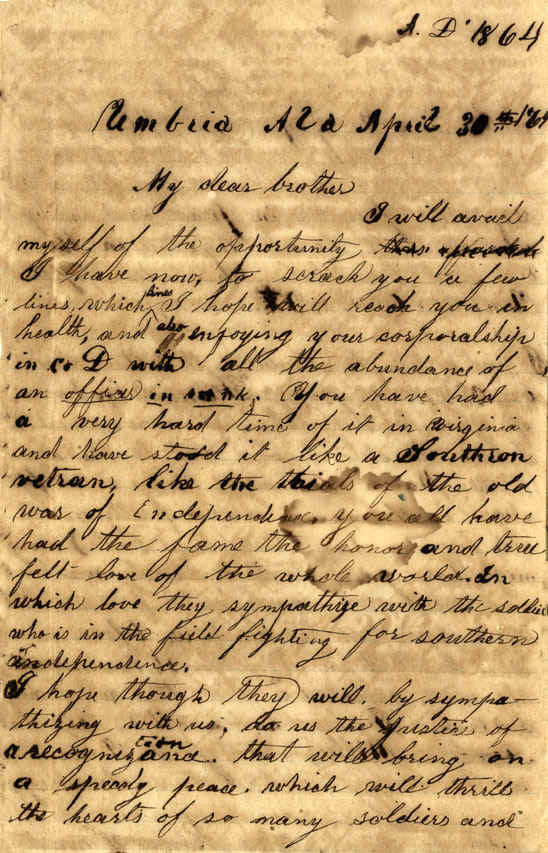 A. D. 1864
Umbria Ala April 30th 1864
My dear brother
I will avail
myself of the opportunity
I have now, to scrach you a few
lines, which lines I hope will reach you in
health, and also enjoying your corporalship
in co D with all the abundance of
an officer in rank. You have had
a very hard time of it in Virginia
and have stood it like a Southron
vetran, like the trials of the old
war of independence. you all have
had the fame the honor and true
felt love of the whole world. In
which love they sympathize with the soldier
who is in the field fighting for southern
independence.
I hope though they will, by sympa-
thizing with us, do us the justice of
a recognization. that will bring on
a speedy peace. which will thrill
the hearts of so many soldiers and